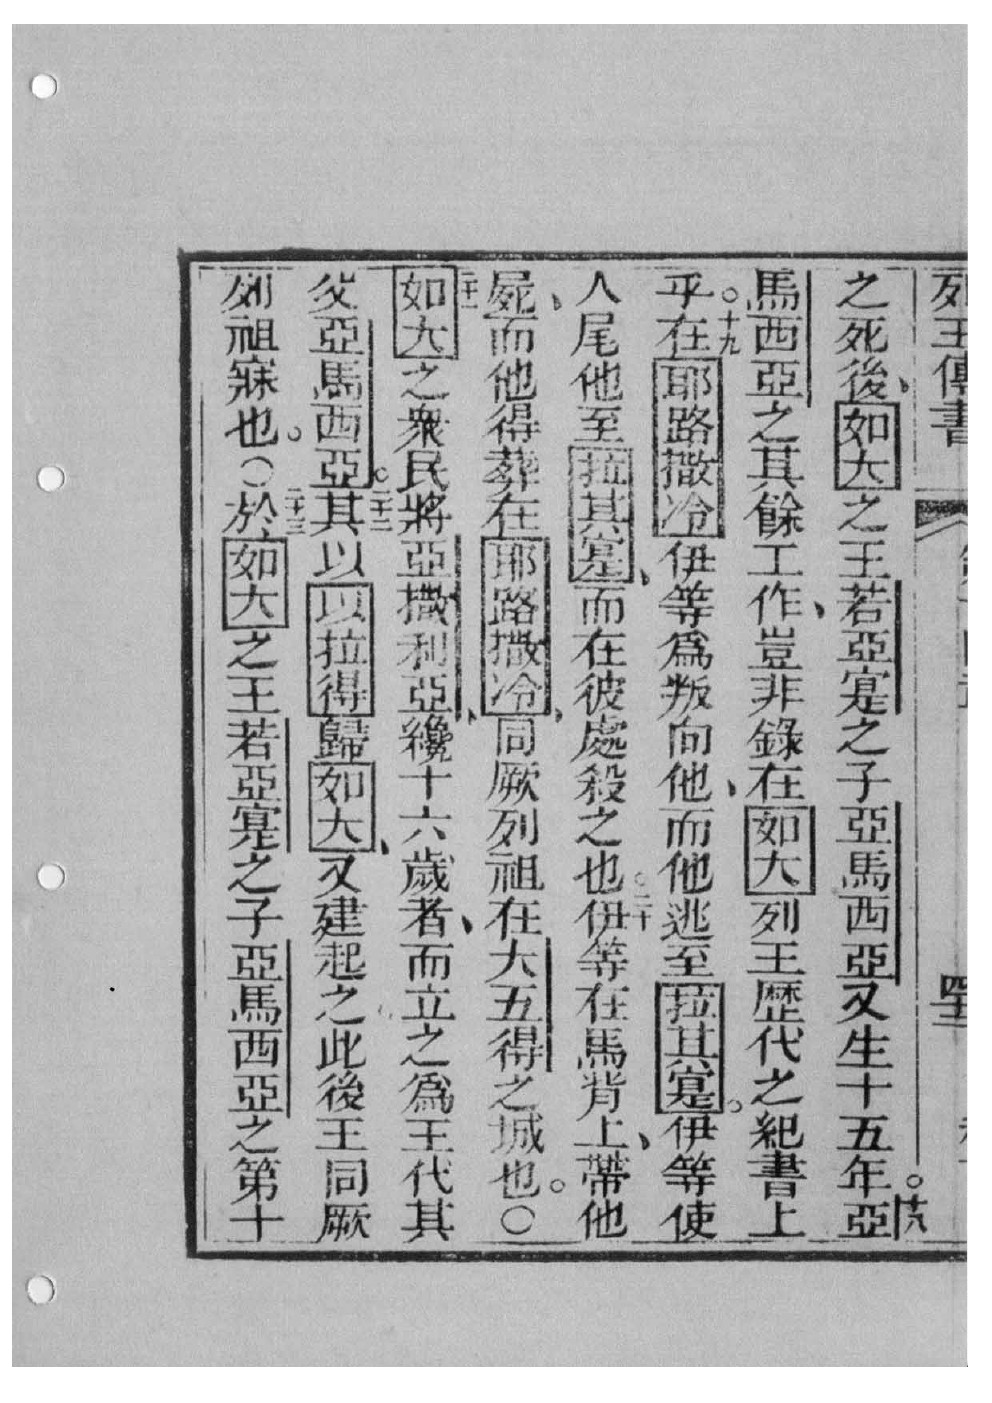 列王傳書
四十三
之死後、如大之王若亞寔之子亞馬西亞又生十五年。十八亞
馬西亞之其餘工作、豈非錄在如大列王歷代之紀書上
乎。十九在耶路撒冷伊等爲叛向他、而他逃至拉其寔。伊等使
人尾他至拉其寔、而在彼處殺之也。二十伊等在馬背上、帶他
屍、而他得葬在耶路撒冷、同厥列祖在大五得之城也。○
二十一如大之衆民將亞撒利亞、纔十六歲者、而立之爲王代其
父亞馬西亞。二十二其以以拉得歸如大、又建起之此後王同厥
列祖寐也。○二十三於如大之王若亞寔之子亞馬西亞之第十